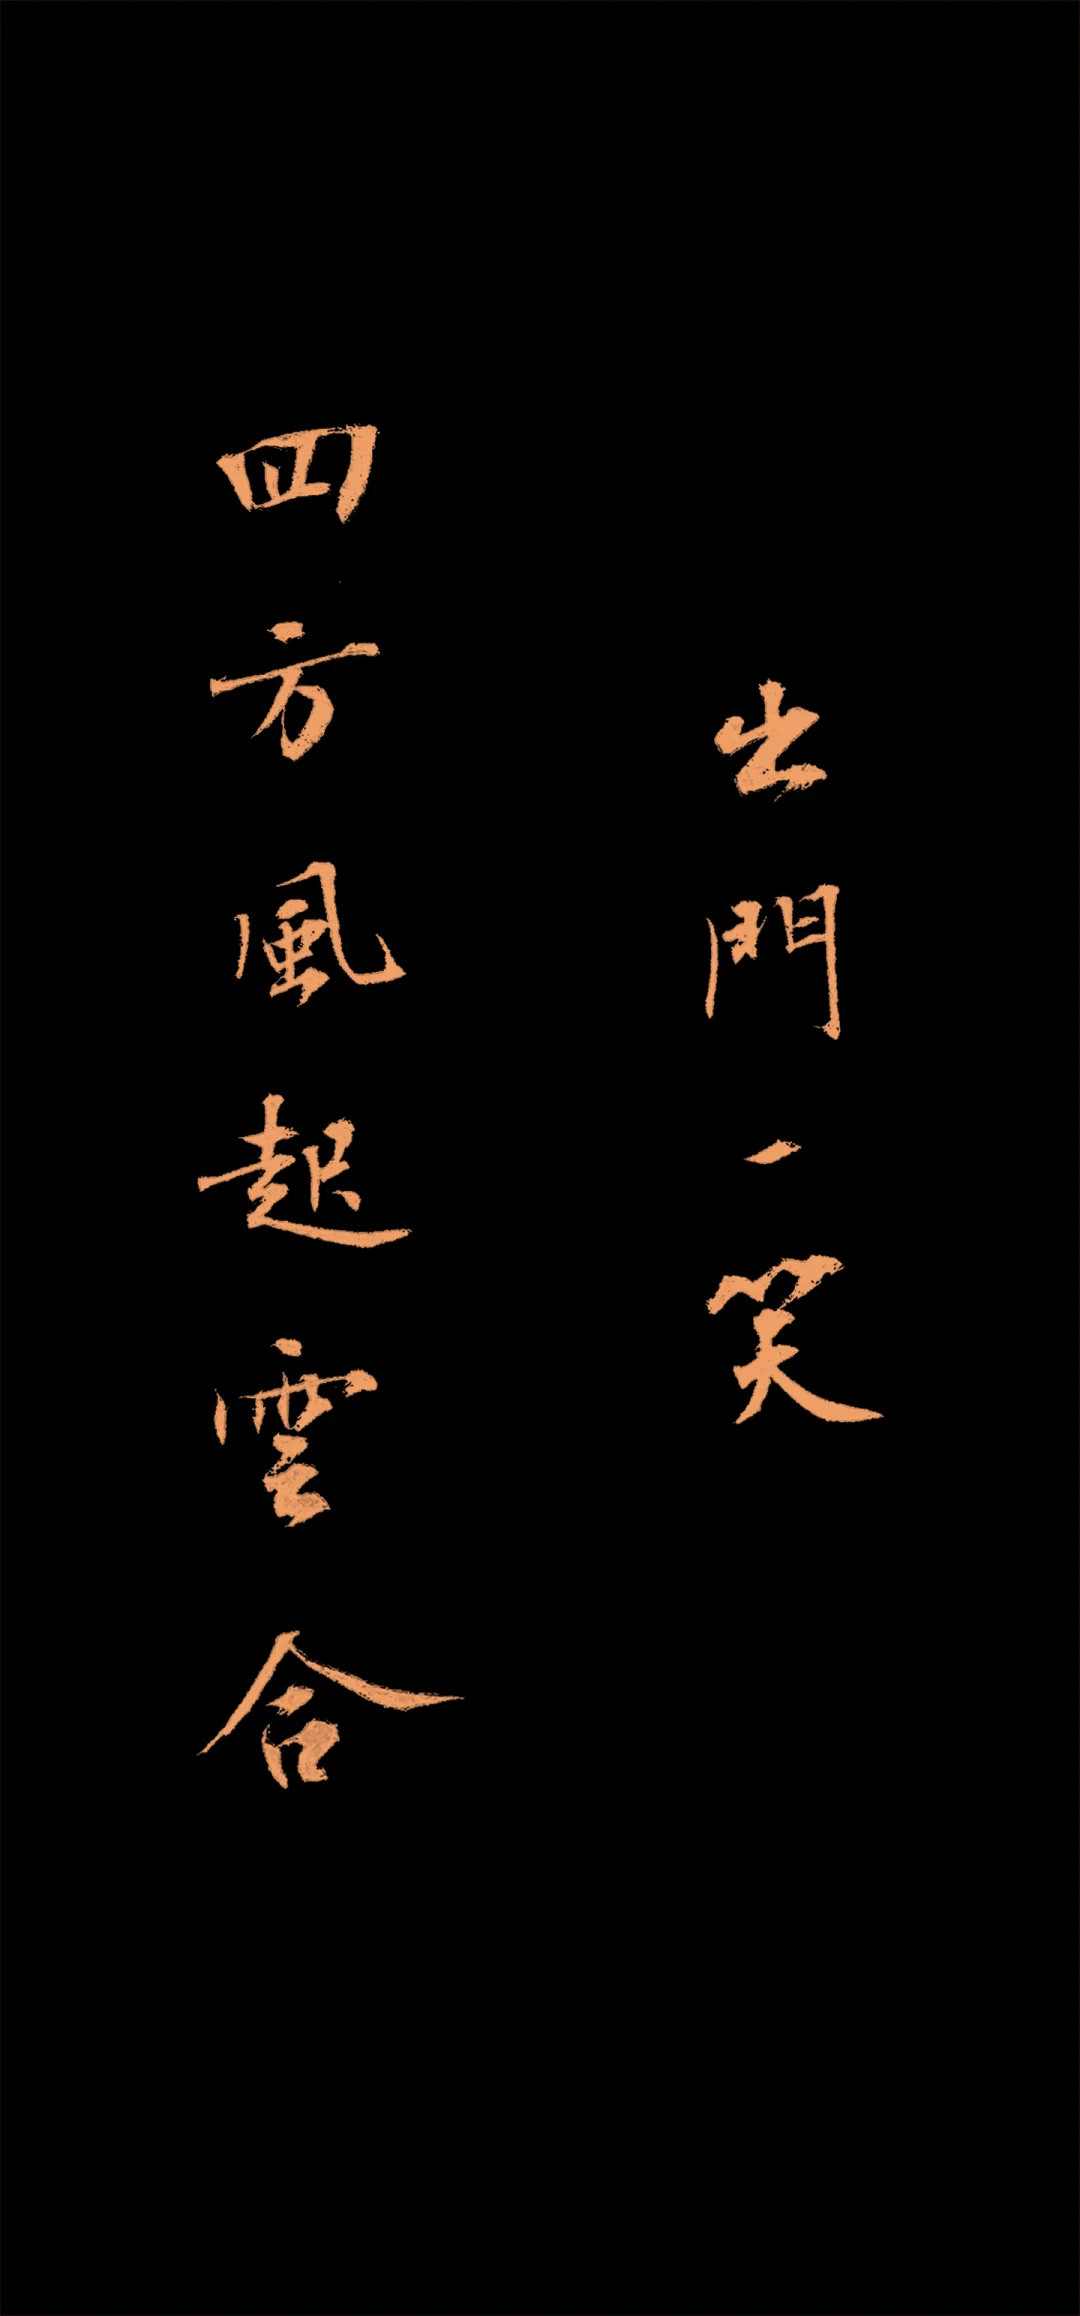 出門一笑
四方風起雲合